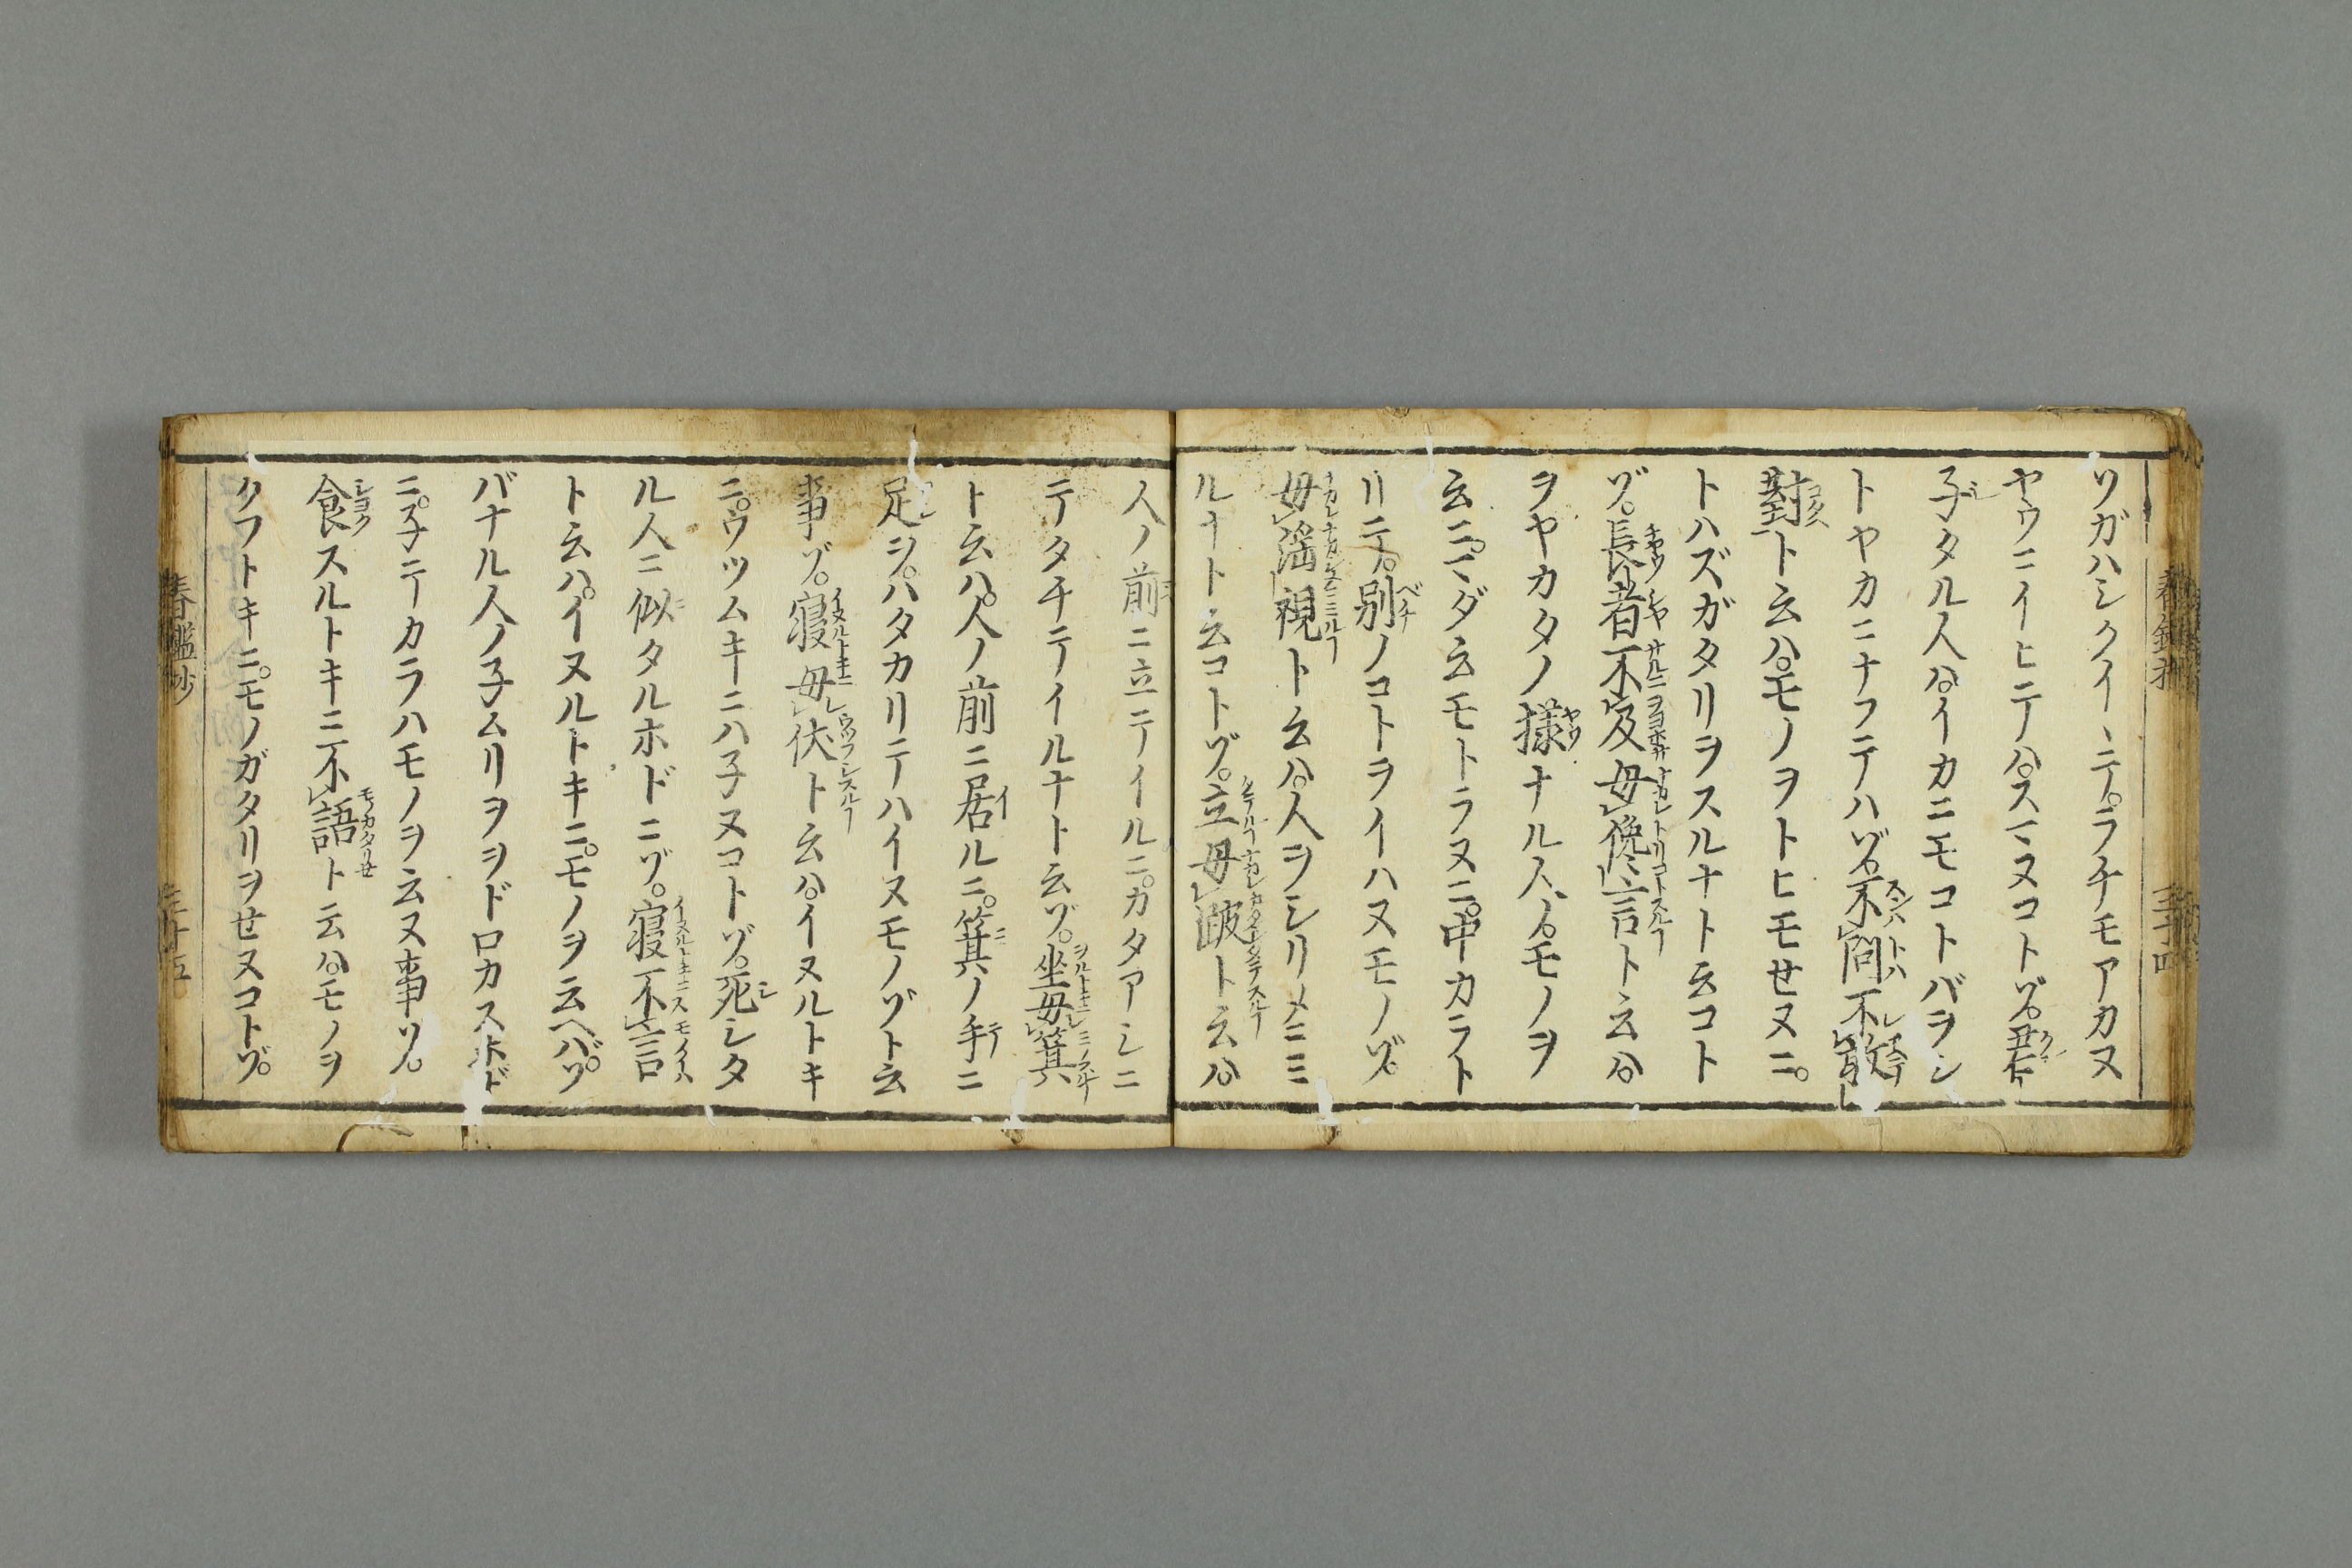 ツガハシクイヽニテ。ラチモアカヌ
ヤウニイヒニテハ。スマヌコトゾ。君
子タル人ハ。イカニモコトバヲシ
トヤカニナフテハゾ。不問不敢
對ト云ハ。モノヲトヒモせヌニ。
トハズガタリヲスルナト云コト
ゾ。長者不及毋儳言ト云ハ。
ヲヤカタノ様ナル人ノ。モノヲ
云ニ。マダ云モトラヌニ。中カラト
リニテ。別ノコトヲイハヌモノゾ。
毋淫視ト云ハ。人ヲシリメニミ
ルナト云コトゾ。立毋跛ト云ハ。
人ノ前ニ立テイルニ。カタアシニ
テタチテイルナト云ゾ。坐毋箕
ト云ハ。人ノ前ニ居ルニ。箕ノ手ニ
足ヲ。ハタカリテハイヌモノゾト云
事ゾ。寝毋伏ト云ハ。イヌルトキ
ニ。ウツムキニハ子ヌコトゾ。死シタ
ル人ニ似タルホドニゾ。寝不言
ト云ハ。イヌルトキニ。モノヲ云ヘバ。ソ
バナル人ノ子ムリヲヲドロカスホド
ニ。子テカラハモノヲ云ヌ事ソ。
食スルトキニ不語ト云ハ。モノヲ
クフトキニ。モノガタリヲせヌコトゾ。
春鑑抄
三十五
三十四